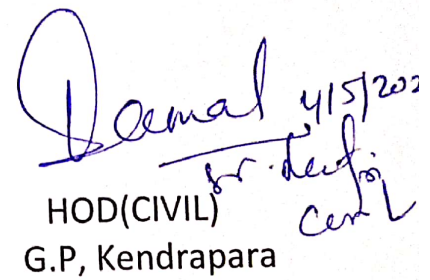 4/5/202
Sr. Lect
Civil
HOD(CIVIL)
G.P, Kendrapara